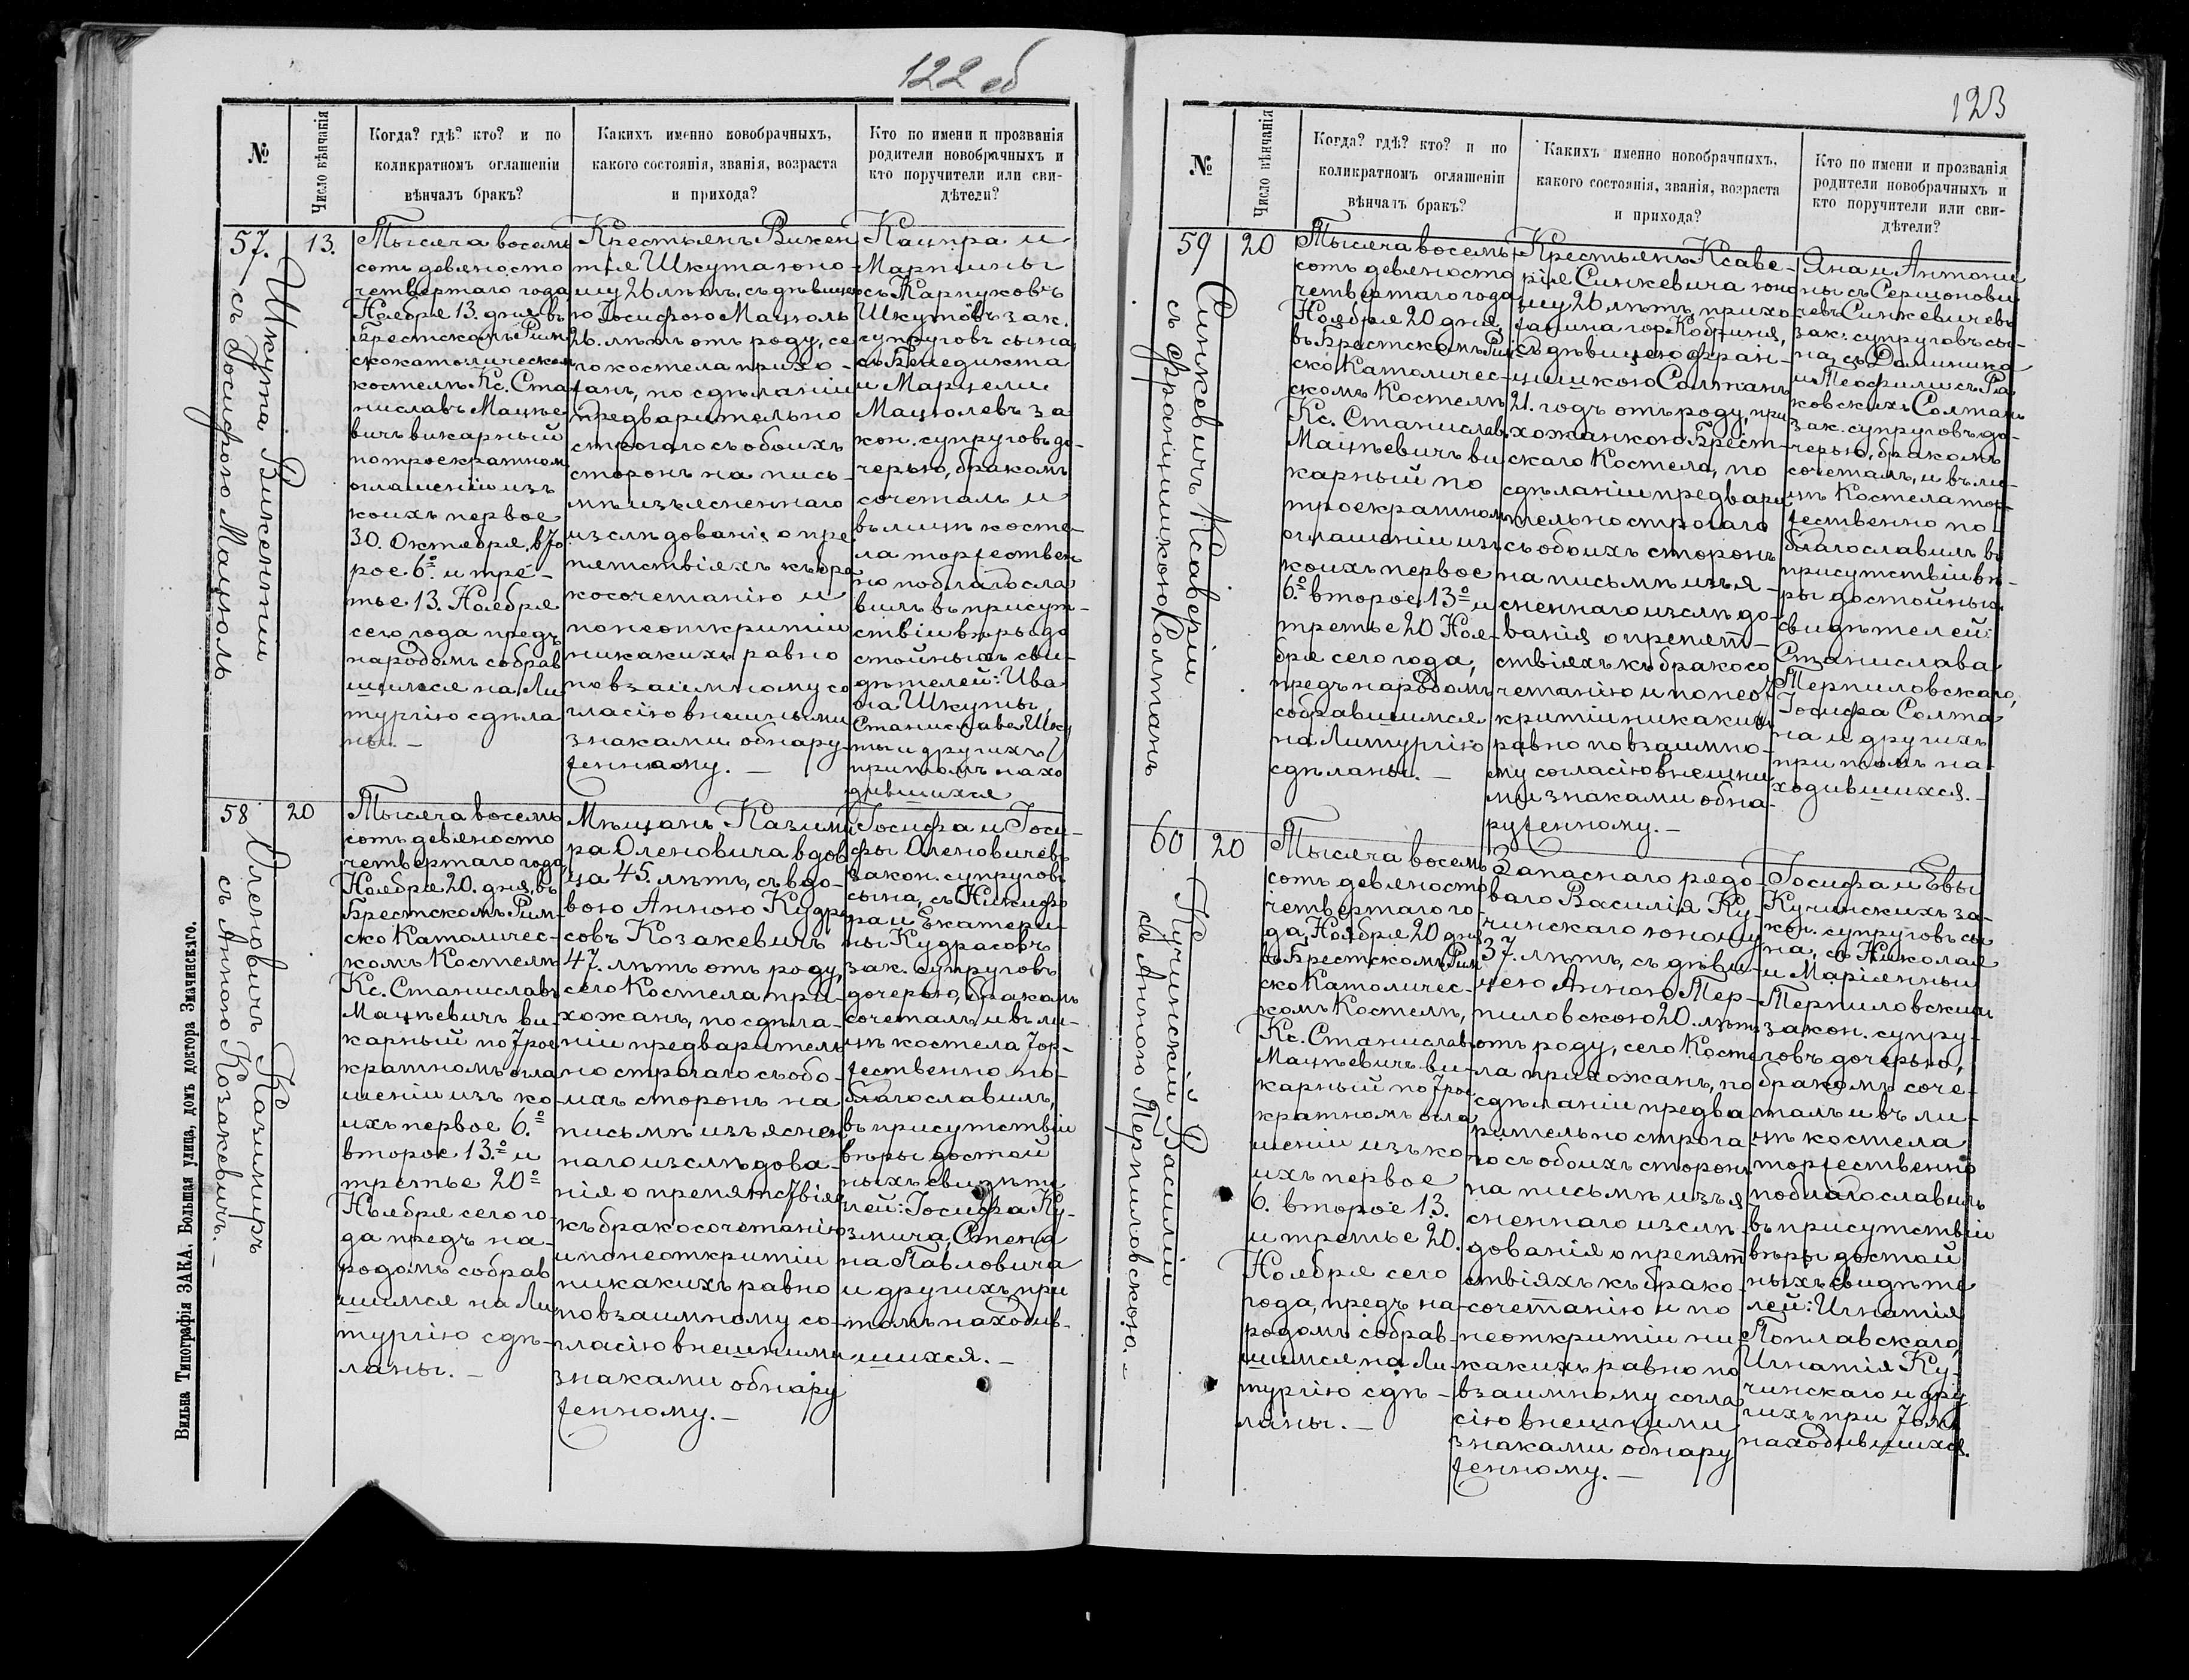 122 об
№
Число вѣнчанія
Когда? гдѣ? кто? и по
коликратномъ оглашеніи
вѣнчалъ бракъ?
Какихъ именно новобрачныхъ,
какого состоянія, званія, возраста
и прихода?
Кто по имени и прозванія
родители новобрачныхъ и
кто поручители или сви-
дѣтели?
57.
Шкута Викентій
съ Іосифою Мацюль
13.
Тысяча восемь
сотъ девяносто
четвертаго года
Ноября 13. дня, въ
Брестскомъ Рим
скокатолическом
костелѣ Кс. Ста
ниславъ Мацѣе
вичъ викарный
по троекратном
оглашеніи изъ
коихъ первое
30. Октября, вто
рое 6º. и тре-
тье 13. Ноября
сего года предъ
народомъ собрав
шимся на Ли
тургію сдѣла
ны. —
Крестьянъ Викен
тія Шкута юно-
шу 26 лѣтъ, съ дѣвицею
ю Іосифою Мацюль
26. лѣтъ отъ роду, се
го костела прихо-
жанъ, по сдѣланіи
предварительно
строгаго съ обоихъ
сторонъ на пись-
мѣ изъясненнаго
изслѣдованія о пре
пятствіяхъ къ бра
косочетанію и
по неоткрытіи
никакихъ равно
по взаимному со
гласію внешними
знаками обнару-
женному. —
Кацпра и
Марцины
съ Карпуковъ
Шкутовъ зак.
супруговъ сына,
съ Бенедикта
и Марцели
Мацюлевъ за
кон. супруговъ до-
черью, бракомъ
сочеталъ и
въ лицѣ косте-
ла торжествен
но поблагосла
вилъ въ присут-
ствіи вѣры до
стойныхъ сви-
дѣтелей: Ива
на Шкуты,
Станислава Шку
ты и другихъ
притомъ нахо
дившихся
58
Оленовичъ Казимиръ
съ Анною Козакевичъ. —
20
Тысяча восемь
сотъ девяносто
четвертаго года
Ноября 20. дня, въ
Брестскомъ Рим-
ско Католичес-
комъ Костелѣ
Кс. Станиславъ
Мацѣевичъ ви-
карный по трое
кратномъ огла
шеніи изъ ко
ихъ первое 6.º
второе 13.º и
третье 20º
Ноября сего го-
да предъ на-
родомъ собрав
шимся на Ли
тургію сдѣ-
ланы. —
Мѣщанъ Казими
ра Оленовича вдов
ца 45. лѣтъ, съ вдо-
вою Анною Кудра
совъ Козакевичъ
47. лѣтъ отъ роду,
сего Костела при-
хожанъ, по сдѣла-
ніи предваритель
но строгаго съ обо-
ихъ сторонъ на
письмѣ изъяснен
наго изслѣдова-
нія о препятствіях
къ бракосочетанію
и по неоткрытіи
никакихъ равно
по взаимному со-
гласію внешними
знаками обнару
женному. —
Іосифа и Іоси-
фы Оленовичевъ
закон. супруговъ
сына, съ Никифо
ра и Екатери-
ны Кудрасовъ
зак. супруговъ
дочерью, бракомъ
сочеталъ и въ ли-
цѣ костела тор-
жественно по-
благославилъ,
въ присутствіи
вѣры достой
ныхъ свидѣте
лей: Іосифа Ку-
змича, Степа
на Павловича
и другихъ при
томъ находив-
шихся. —
Вильна Типографія ЗАКА. Большая улица, домъ доктора Значинскаго.
123
№
Число вѣнчанія
Когда? гдѣ? кто? и по
коликратномъ оглашеніи
вѣнчалъ бракъ?
Какихъ именно новобрачныхъ,
какого состоянія, званія, возраста
и прихода?
Кто по имени и прозванія
родители новобрачныхъ и
кто поручители или сви-
дѣтели?
59
Синкевичъ Ксаверій
съ Францишкою Солтанъ
20
Тысяча восемь
сотъ девяносто
четвертаго года
Ноября 20 дня,
въ Брестскомъ Рим
ско Католичес-
скомъ Костелѣ
Кс. Станиславъ
Мацѣевичъ ви
карный по
троекратном
оглашеніи изъ
коихъ первое
6.º второе 13º и
третье 20 Ноя-
бря сего года,
предъ народомъ
собравшимся
на Литургію
сдѣланы. —
Крестьянъ Ксаве-
рія Синкевича юно
шу 26 лѣтъ, прихо
жанина гор. Кобрина,
съ дѣвицею Фран-
цишкою Солтанъ
21. годъ отъ роду, при
хожанкою Брест-
скаго Костела, по
сдѣланіи предвари
тельно строгаго
съ обоихъ сторонъ
на письмѣ изъя-
сненнаго изслѣдо-
ванія о препят-
ствіяхъ къ бракосо
четанію и по неот
крытіи никакихъ
равно по взаимно-
му согласію внешни
ми знаками обна-
руженному. —
Яна и Антони
ны съ Сермонови
чевъ Синкевичевъ
зак. супруговъ сы-
на, съ Доминика
и Теофили съ Ра
ковскихъ Солтанъ
зак. супруговъ до-
черью, бракомъ
сочеталъ, и въ ли-
цѣ Костела тор-
жественно по-
благославилъ въ
присутствіи вѣ-
ры достойных
свидѣтелей:
Станислава
Терпиловскаго,
Іосифа Солта
на и другихъ
при томъ на-
ходившихся. —
60
Кучинскій Василій
съ Анною Терпиловскою. —
20
Тысяча восемь
сотъ девяносто
четвертаго го-
да, Ноября 20 дня
въ Брестскомъ Рим
ско Католичес-
комъ Костелѣ,
Кс. Станиславъ
Мацѣевичъ ви-
карный по трое
кратномъ огла
шеніи изъ ко
ихъ первое
6. второе 13.
и третье 20.
Ноября сего
года, предъ на-
родомъ собрав-
шимся на Ли-
тургію сдѣ-
ланы. —
Запаснаго рядо-
ваго Василія Ку-
чинскаго юношу
37. лѣтъ, съ дѣви-
цею Анною Тер-
пиловскою 20. лѣтъ
отъ роду, сего Косте
ла прихожанъ, по
сдѣланіи предва
рительно строга
го съ обоихъ сторонъ
на письмѣ изъя
сненнаго изслѣ-
дованія о препят
ствіяхъ къ брако-
сочетанію и по
неоткрытіи ни
какихъ равно по
взаимному согла
сію внешними
знаками обнару
женному. —
Іосифа и Евы
Кучинскихъ за-
кон. супруговъ сы
на, съ Николая
и Маріянны
Терпиловских
закон. супру-
говъ дочерью,
бракомъ соче-
талъ и въ ли-
цѣ костела
торжественно
поблагославилъ
въ присутствіи
вѣры достой
ныхъ свидѣте
лей: Игнатія
Поплавскаго,
Игнатія Ку-
чинскаго и дру
гихъ при томъ
находившихся.